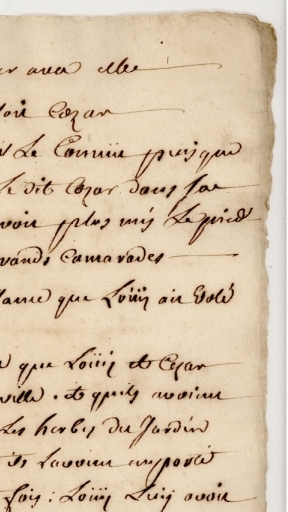 avec elle
Cezar
Le Connu puisque
Le dit Cezar dans sa
voir plus mis Le pied
rands Camarades
lame que Loüis ait Volé
que Loüis et Cezar
ville . et quils avoient
Les herbes du Jardin
ils L'avoient emporté
fois : Loüis Luy avoit